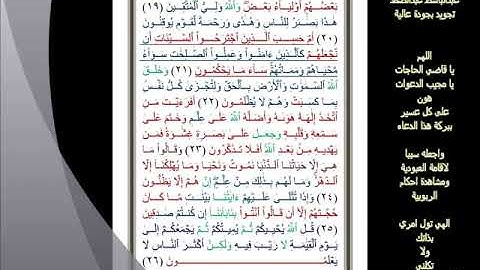 بَعْضُهُمْ أَوْلِيَآءُ بَعْضٍ وَٱللَّهُ وَلِيُّ ٱلْمُتَّقِينَ (١٩)
هَٰذَا بَصَٰٓئِرُ لِلنَّاسِ وَهُدًى وَرَحْمَةٌ لِّقَوْمٍ يُوقِنُونَ
(٢٠) أَمْ حَسِبَ ٱلَّذِينَ ٱجْتَرَحُوا۟ ٱلسَّيِّـَٔاتِ أَن
نَّجْعَلَهُمْ كَٱلَّذِينَ ءَامَنُوا۟ وَعَمِلُوا۟ ٱلصَّٰلِحَٰتِ سَوَآءً
مَّحْيَاهُمْ وَمَمَاتُهُمْ سَآءَ مَا يَحْكُمُونَ (٢١) وَخَلَقَ
ٱللَّهُ ٱلسَّمَٰوَٰتِ وَٱلْأَرْضَ بِٱلْحَقِّ وَلِتُجْزَىٰ كُلُّ نَفْسٍۭ
بِمَا كَسَبَتْ وَهُمْ لَا يُظْلَمُونَ (٢٢) أَفَرَءَيْتَ مَنِ
ٱتَّخَذَ إِلَٰهَهُۥ هَوَىٰهُ وَأَضَلَّهُ ٱللَّهُ عَلَىٰ عِلْمٍ وَخَتَمَ عَلَىٰ
سَمْعِهِۦ وَقَلْبِهِۦ وَجَعَلَ عَلَىٰ بَصَرِهِۦ غِشَٰوَةً فَمَن
يَهْدِيهِ مِنۢ بَعْدِ ٱللَّهِ أَفَلَا تَذَكَّرُونَ (٢٣) وَقَالُوا۟ مَا
هِىَ إِلَّا حَيَاتُنَا ٱلدُّنْيَا نَمُوتُ وَنَحْيَا وَمَا يُهْلِكُنَآ إِلَّا
ٱلدَّهْرُ وَمَا لَهُم بِذَٰلِكَ مِنْ عِلْمٍ إِنْ هُمْ إِلَّا يَظُنُّونَ
(٢٤) وَإِذَا تُتْلَىٰ عَلَيْهِمْ ءَايَٰتُنَا بَيِّنَٰتٍ مَّا كَانَ
حُجَّتَهُمْ إِلَّآ أَن قَالُوا۟ ٱئْتُوا۟ بِـَٔابَآئِنَآ إِن كُنتُمْ صَٰدِقِينَ
(٢٥) قُلِ ٱللَّهُ يُحْيِيكُمْ ثُمَّ يُمِيتُكُمْ ثُمَّ يَجْمَعُكُمْ إِلَىٰ
يَوْمِ ٱلْقِيَٰمَةِ لَا رَيْبَ فِيهِ وَلَٰكِنَّ أَكْثَرَ ٱلنَّاسِ لَا
يَعْلَمُونَ (٢٦)
عبدالباسط عبدالصمد
تجويد بجودة عالية
اللهم
يا قاضي الحاجات
يا مجيب الدعوات
هون
على كل عسير
ببركة هذا الدعاء
واجعله سببا
لاقامة العبودية
ومشاهدة احكام
الربوبية
الهي تول امري
بذاتك
ولا
تكلني